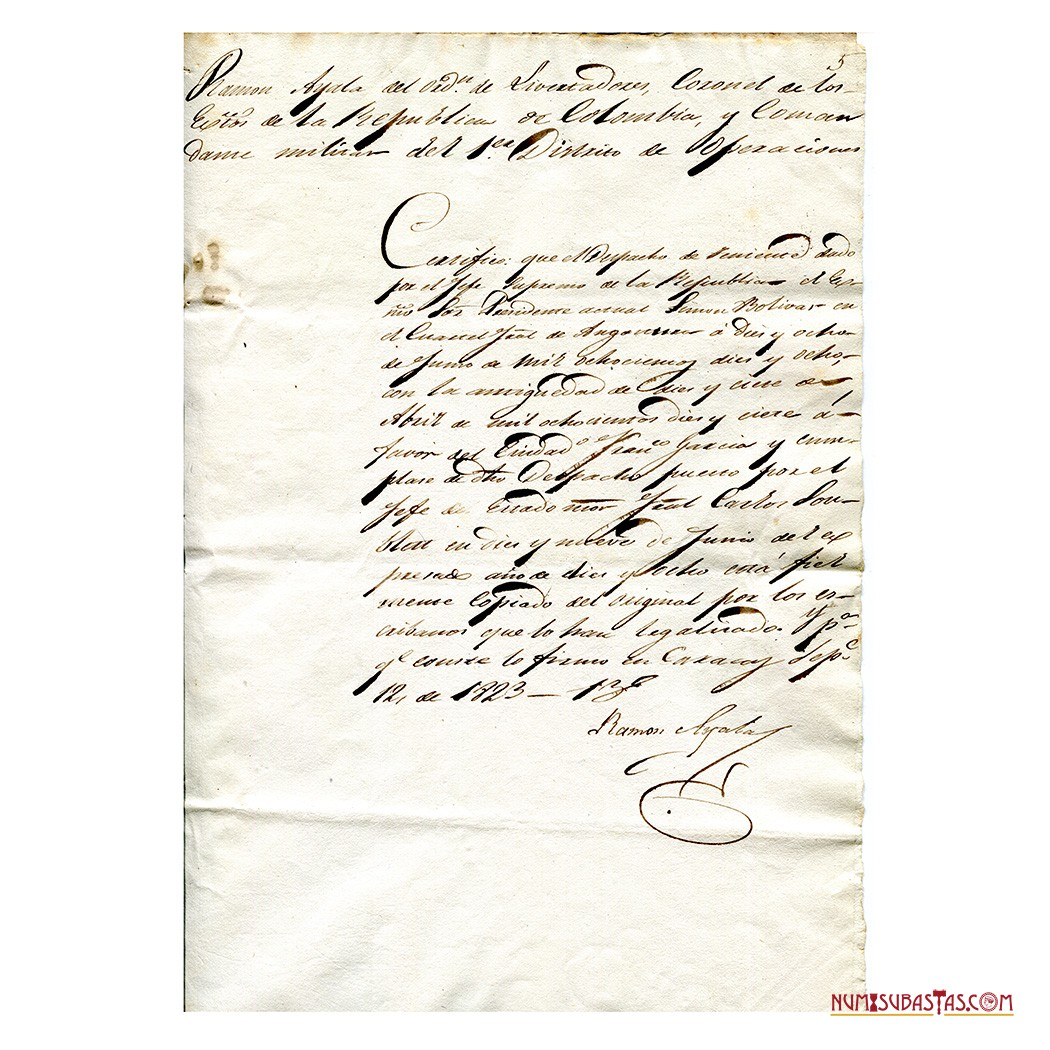 5
Ramon Ayala del Ordn. de Livertadores, Coronel de los
Extos de la Republica de Colombia, y Coman
dante militar del 1er. Distrito de Operaciones
Certifico: que el Despacho de Teniente dado
por el Jefe Supremo de la Republica el Ex-
mo Sor. Presidente actual Simon Bolivar en
el Cuartel Jral de Angostura á dies y ocho
de Junio de mil ochocientos dies y ocho,
con la antiguedad de dies y ciete de
Abril de mil ochocientos dies y ciete á
favor del Ciudado Franco Garcia y cum-
plase de dho Despacho puesto por el
Jefe de Estado mor Jral Carlos Sou-
blett en dies y nueve de Junio del ex
presado año de dies y ocho está fiel
mente copiado del original por los es-
cribanos que lo han legalisado. Y pa.
qe conste lo firmo en Caracas Sepe
12, de 1823—
Ramon Ayala
NUMISUBASTAS.COM